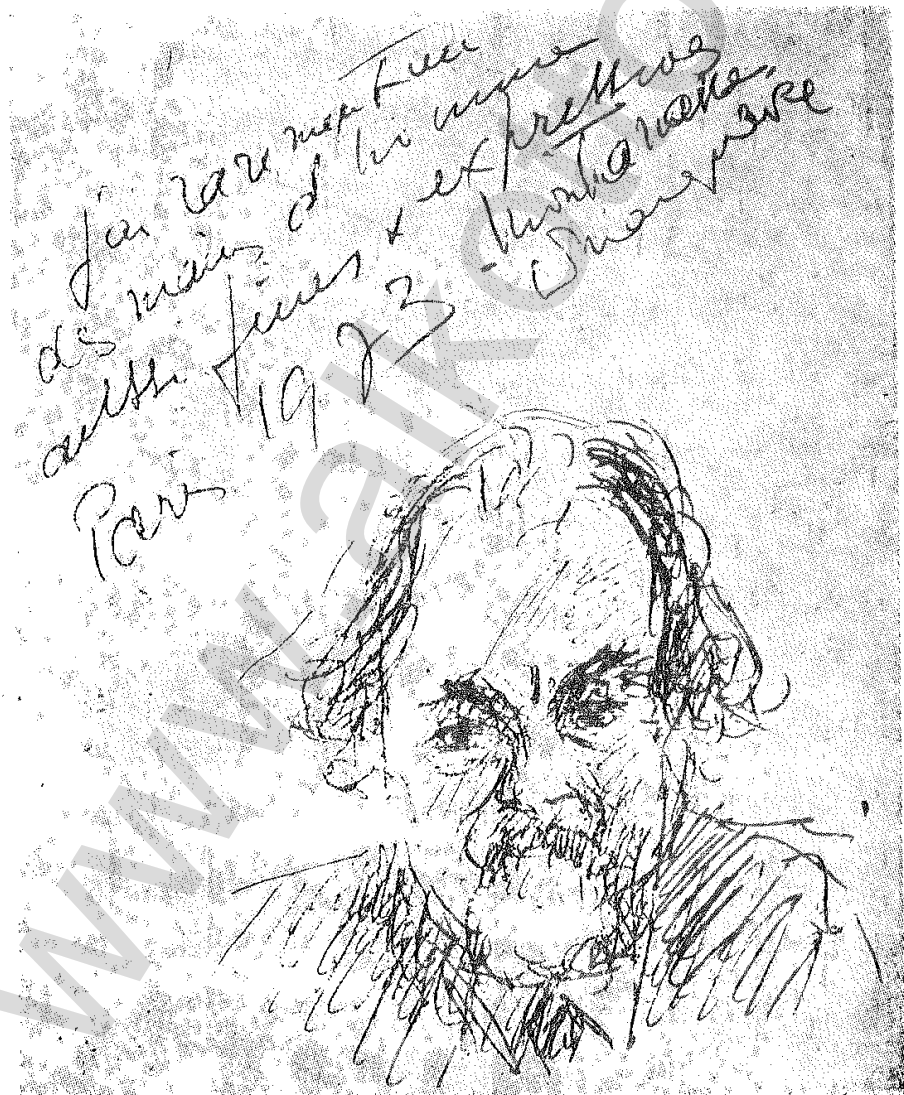 j'ai rarement vu
des mains d'homme
aussi fines & expressives
Paris 1973 - Montparnasse.
www.alko